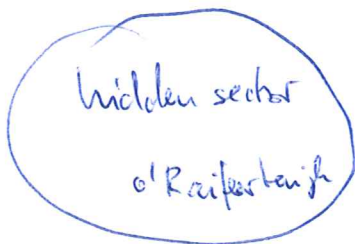 hidden sector
o'Raifeartaigh